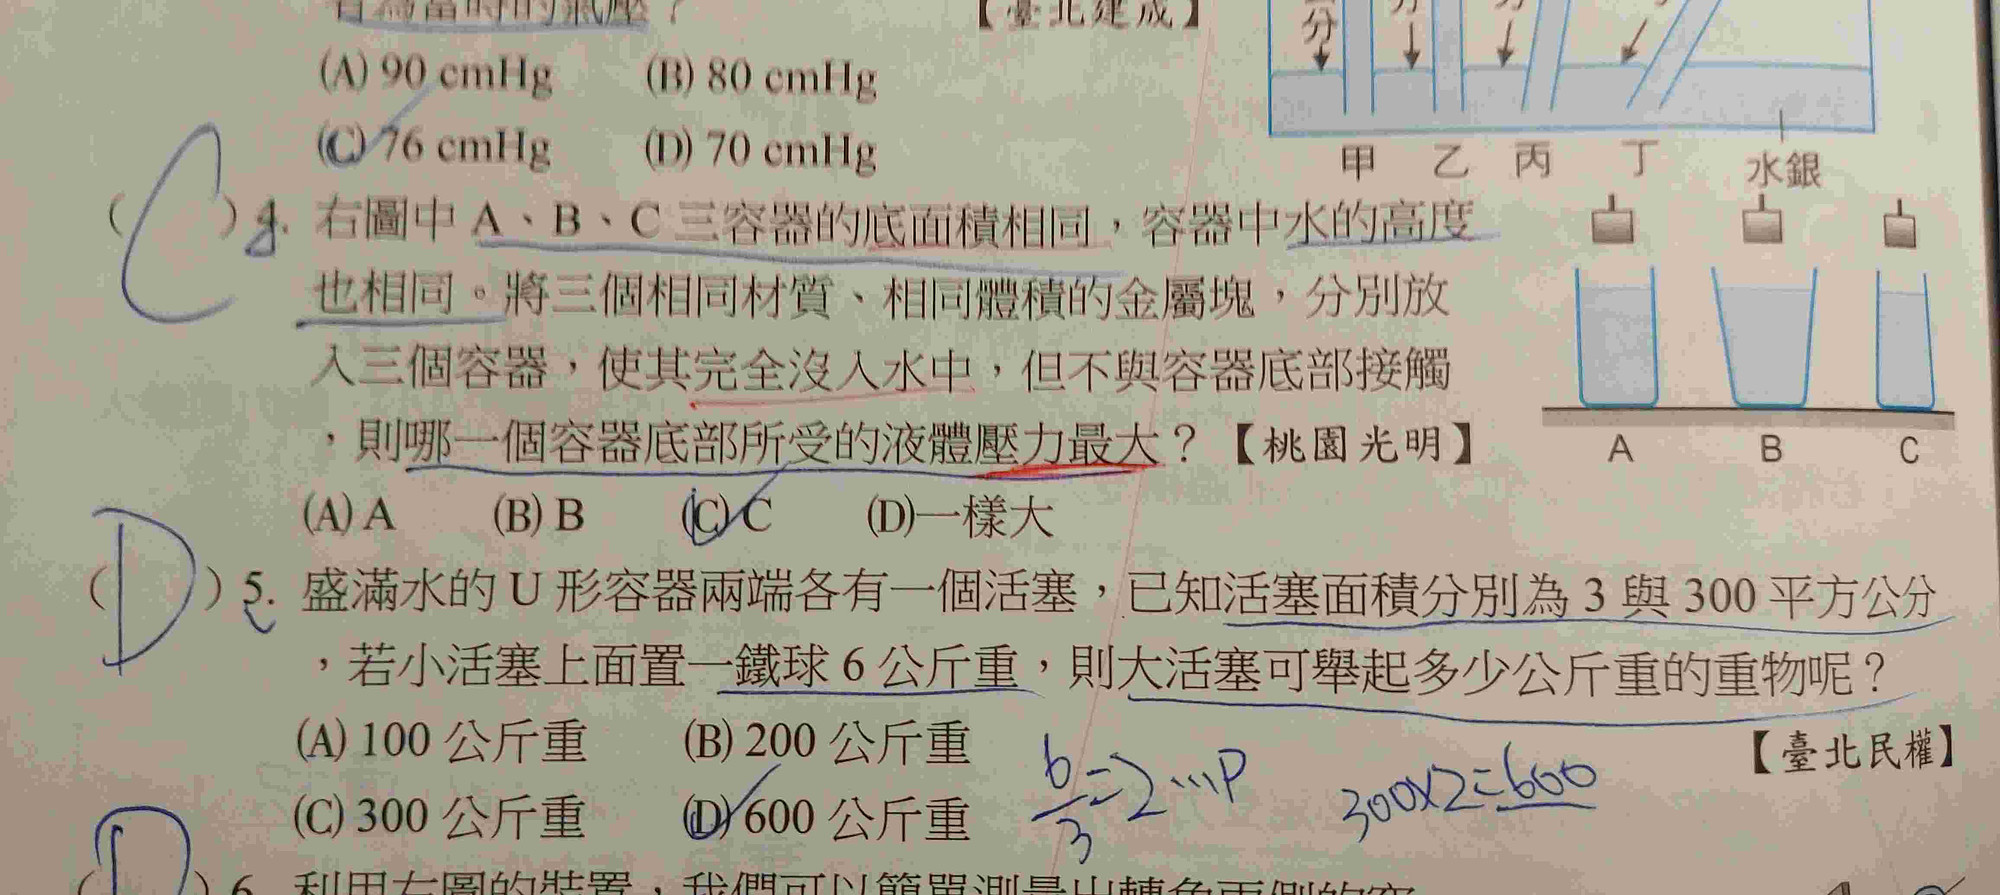 者為當時的氣壓？ 【臺北建成】
(A) 90 cmHg (B) 80 cmHg
(C) 76 cmHg (D) 70 cmHg
分
甲 乙 丙 丁 水銀
( C ) 4. 右圖中 A、B、C 三容器的底面積相同，容器中水的高度
也相同。將三個相同材質、相同體積的金屬塊，分別放
入三個容器，使其完全沒入水中，但不與容器底部接觸
，則哪一個容器底部所受的液體壓力最大？【桃園光明】
A B C
(A) A (B) B (C) C (D)一樣大
( D ) 5. 盛滿水的 U 形容器兩端各有一個活塞，已知活塞面積分別為 3 與 300 平方公分
，若小活塞上面置一鐵球 6 公斤重，則大活塞可舉起多少公斤重的重物呢？
【臺北民權】
(A) 100 公斤重 (B) 200 公斤重
(C) 300 公斤重 (D) 600 公斤重
6/3=2…P 300×2=600
( D ) 6. 利用右圖的裝置，我們可以簡單測量出轉角兩側的